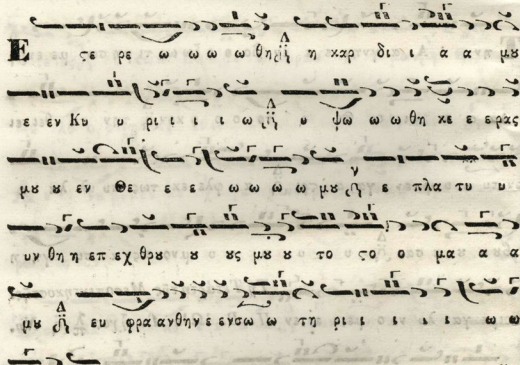 Ε ϛε ρε ω ω ω ω θη η καρ δι ι α α μȣ
ε εν Κυ υ ρι ι ι ι ω υ ψω ω ω θη κε ε ερας
μȣ ȣ εν Θε ε ε ω ω ω ω μȣ ε πλα τυ υ
υν θη η επ εχ θρȣ ȣ ȣς μȣ ȣ το ϛο ο μα α α
μȣ ευ φρα ανθην ε ενσω ω τη ρι ι ι ι ι ω ω